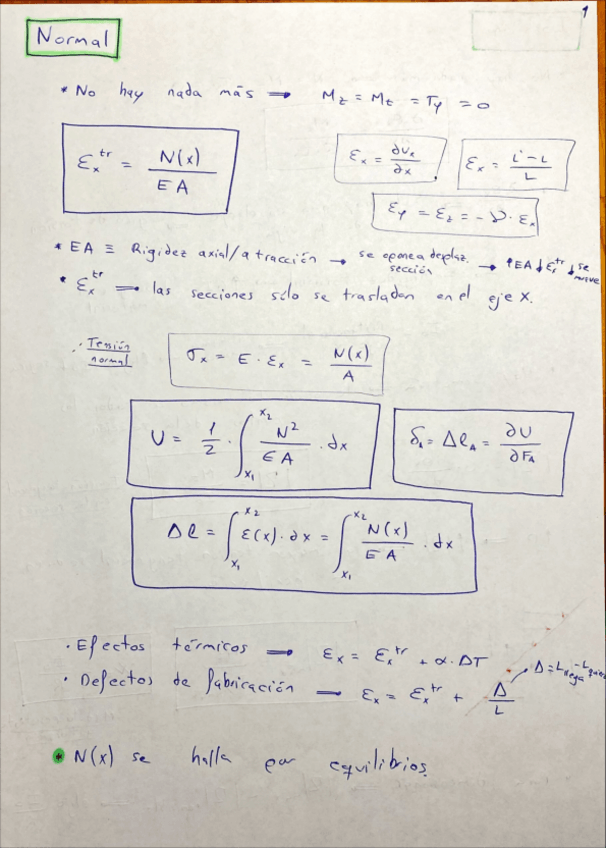 1
Normal
* No hay nada más → Mz = Mt = Ty = 0
εx^tr = N(x) / EA
εx = ∂ux / ∂x
εx = (L' - L) / L
εy = εz = -ν · εx
* EA ≡ Rigidez axial/a tracción → se opone a desplaz. sección → ↑EA ↓εx^tr ↓ se mueve
* εx^tr → las secciones sólo se trasladan en el eje X.
· Tensión normal
σx = E · εx = N(x) / A
U = 1/2 · ∫_{x1}^{x2} N² / EA · dx
δA = ΔlA = ∂U / ∂FA
Δl = ∫_{x1}^{x2} ε(x) · dx = ∫_{x1}^{x2} N(x) / EA · dx
· Efectos térmicos → εx = εx^tr + α · ΔT
· Defectos de fabricación → εx = εx^tr + Δ / L
Δ = Lllega - L
* N(x) se halla por equilibrios.